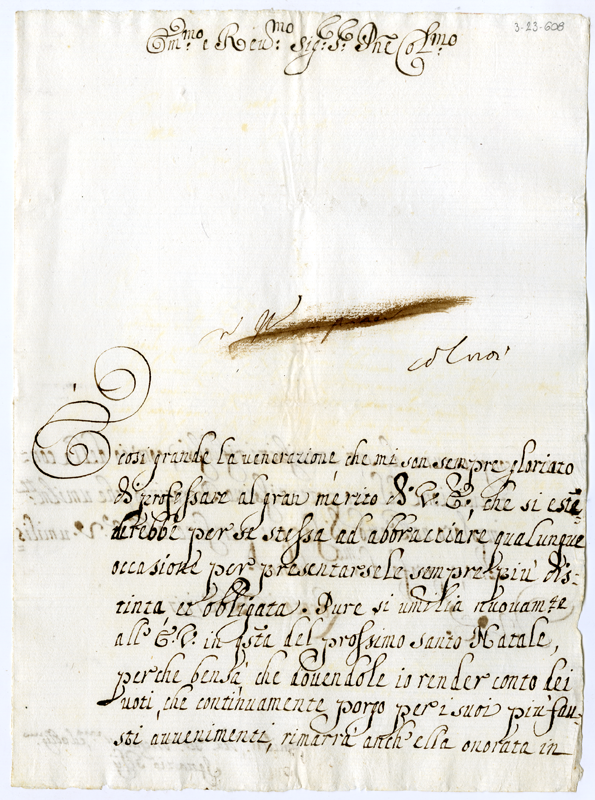 3-23-608
Em.mo e Reu.mo Sig.r S.r Pne Col.mo
È cosi grande la uenerazione, che mi son sempre gloriato
di professare al gran merito di V. E., che si esten=
derebbe per se stessa ad abbracciare qualunque
occasione per presentarsele sempre più dis=
tinta et obligata. Pure si umilia nuouam.te
all' E. V. in q.sta del prossimo santo Natale,
perche bensà che douendole io render conto dei
uoti, che continuamente porgo per i suoi piu fau=
sti auuenimenti, rimarrà anch' ella onorata in